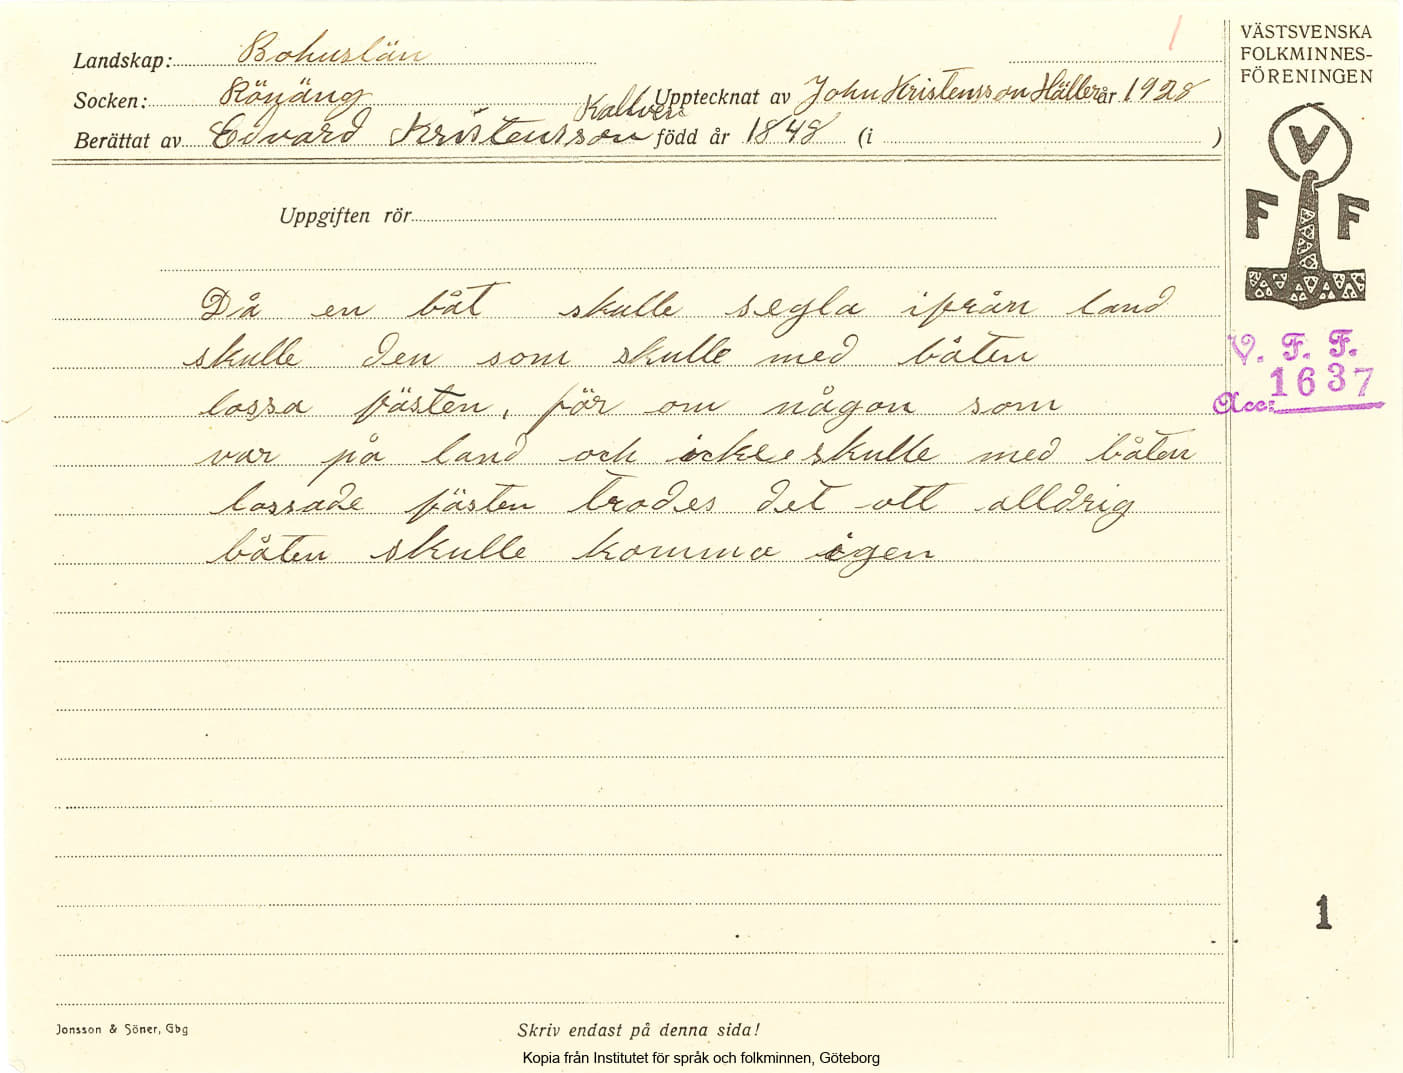 1
Landskap: Bohuslän
Socken: Rönäng Upptecknat av John Kristensson Häller år 1928
Kallvere
Berättat av Edvard Kristensson född år 1848 (i )
Uppgiften rör
Då en båt skulle segla ifrån land
skulle den som skulle med båten
lossa fästen, för om någon som
var på land och icke skulle med båten
lossade fästen trodes det att alldrig
båten skulle komma igen
Jonsson & Söner, Gbg
Skriv endast på denna sida!
Kopia från Institutet för språk och folkminnen, Göteborg
VÄSTSVENSKA
FOLKMINNES-
FÖRENINGEN
V
F F
V. F. F.
Acc: 1637
1